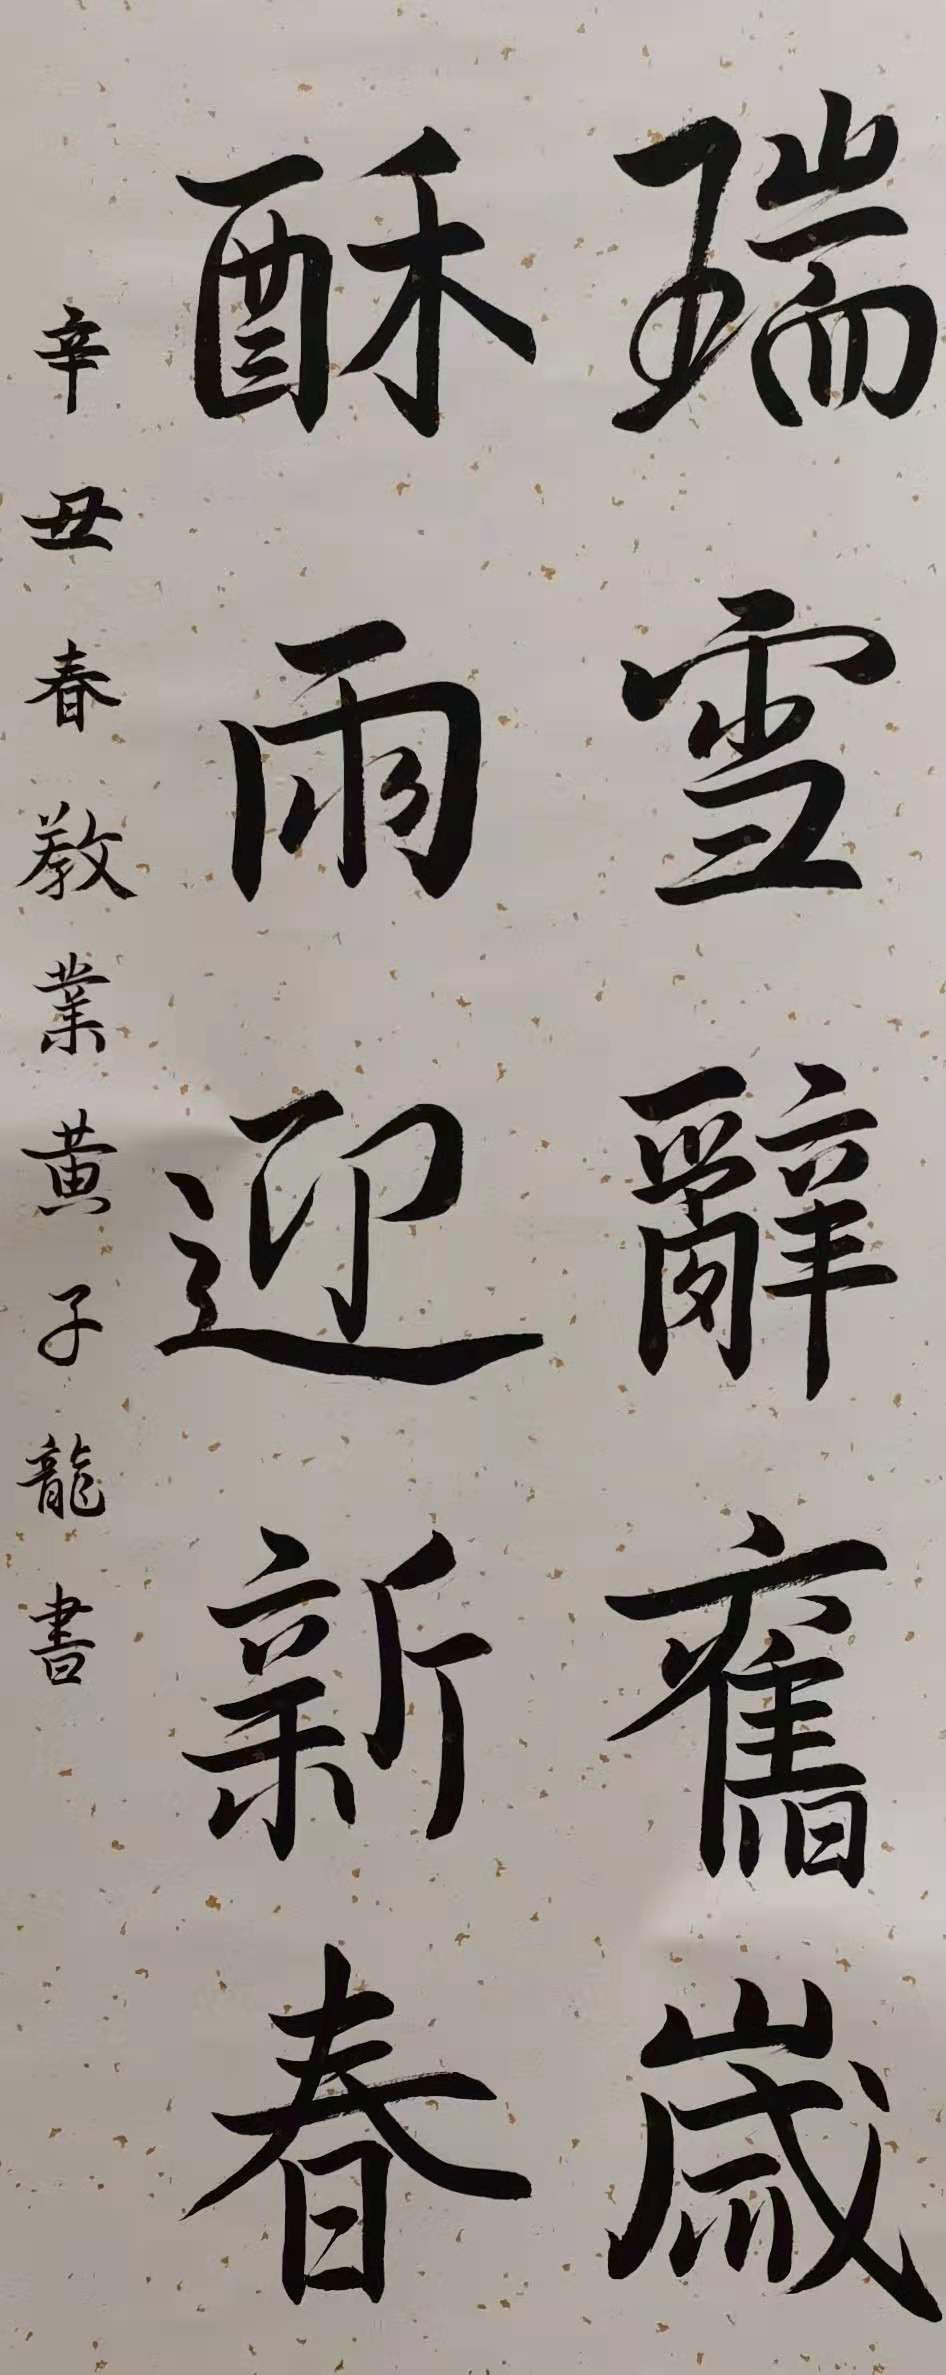 瑞雪辭舊歲
酥雨迎新春
辛丑春教業黄子龍書